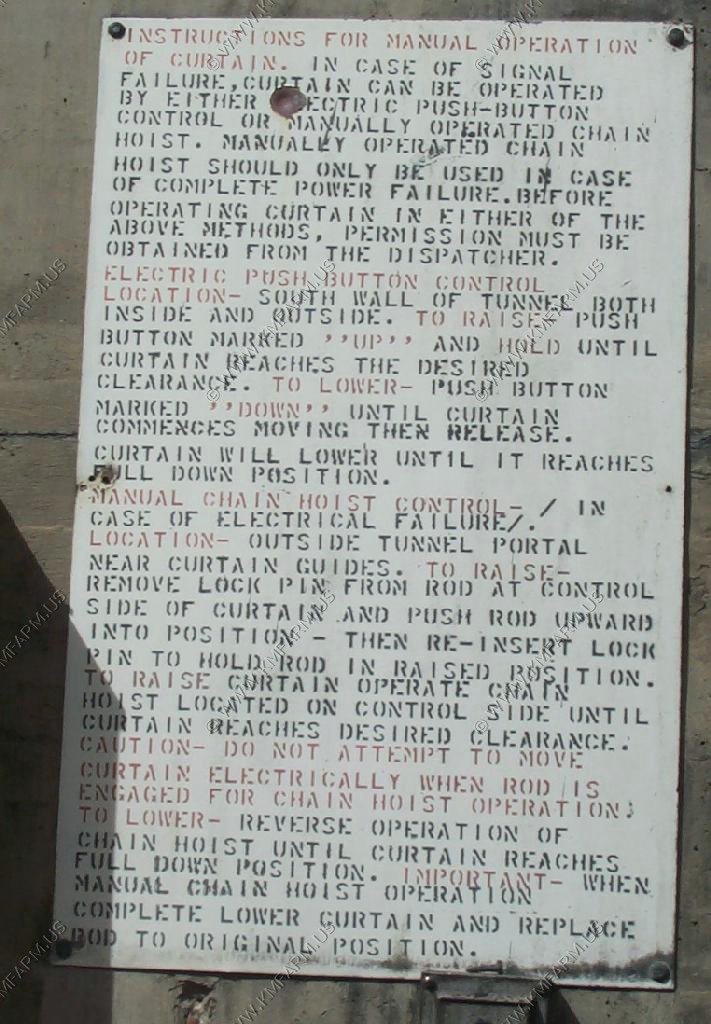 INSTRUCTIONS FOR MANUAL OPERATION
OF CURTAIN. IN CASE OF SIGNAL
FAILURE, CURTAIN CAN BE OPERATED
BY EITHER ELECTRIC PUSH-BUTTON
CONTROL OR MANUALLY OPERATED CHAIN
HOIST. MANUALLY OPERATED CHAIN
HOIST SHOULD ONLY BE USED IN CASE
OF COMPLETE POWER FAILURE. BEFORE
OPERATING CURTAIN IN EITHER OF THE
ABOVE METHODS, PERMISSION MUST BE
OBTAINED FROM THE DISPATCHER.
ELECTRIC PUSH BUTTON CONTROL
LOCATION- SOUTH WALL OF TUNNEL BOTH
INSIDE AND OUTSIDE. TO RAISE- PUSH
BUTTON MARKED ''UP'' AND HOLD UNTIL
CURTAIN REACHES THE DESIRED
CLEARANCE. TO LOWER- PUSH BUTTON
MARKED ''DOWN'' UNTIL CURTAIN
COMMENCES MOVING THEN RELEASE.
CURTAIN WILL LOWER UNTIL IT REACHES
FULL DOWN POSITION.
MANUAL CHAIN HOIST CONTROL- / IN
CASE OF ELECTRICAL FAILURE/.
LOCATION- OUTSIDE TUNNEL PORTAL
NEAR CURTAIN GUIDES. TO RAISE-
REMOVE LOCK PIN FROM ROD AT CONTROL
SIDE OF CURTAIN AND PUSH ROD UPWARD
INTO POSITION - THEN RE-INSERT LOCK
PIN TO HOLD ROD IN RAISED POSITION.
TO RAISE CURTAIN OPERATE CHAIN
HOIST LOCATED ON CONTROL SIDE UNTIL
CURTAIN REACHES DESIRED CLEARANCE.
CAUTION- DO NOT ATTEMPT TO MOVE
CURTAIN ELECTRICALLY WHEN ROD IS
ENGAGED FOR CHAIN HOIST OPERATION.
TO LOWER- REVERSE OPERATION OF
CHAIN HOIST UNTIL CURTAIN REACHES
FULL DOWN POSITION. IMPORTANT- WHEN
MANUAL CHAIN HOIST OPERATION
COMPLETE LOWER CURTAIN AND REPLACE
ROD TO ORIGINAL POSITION.